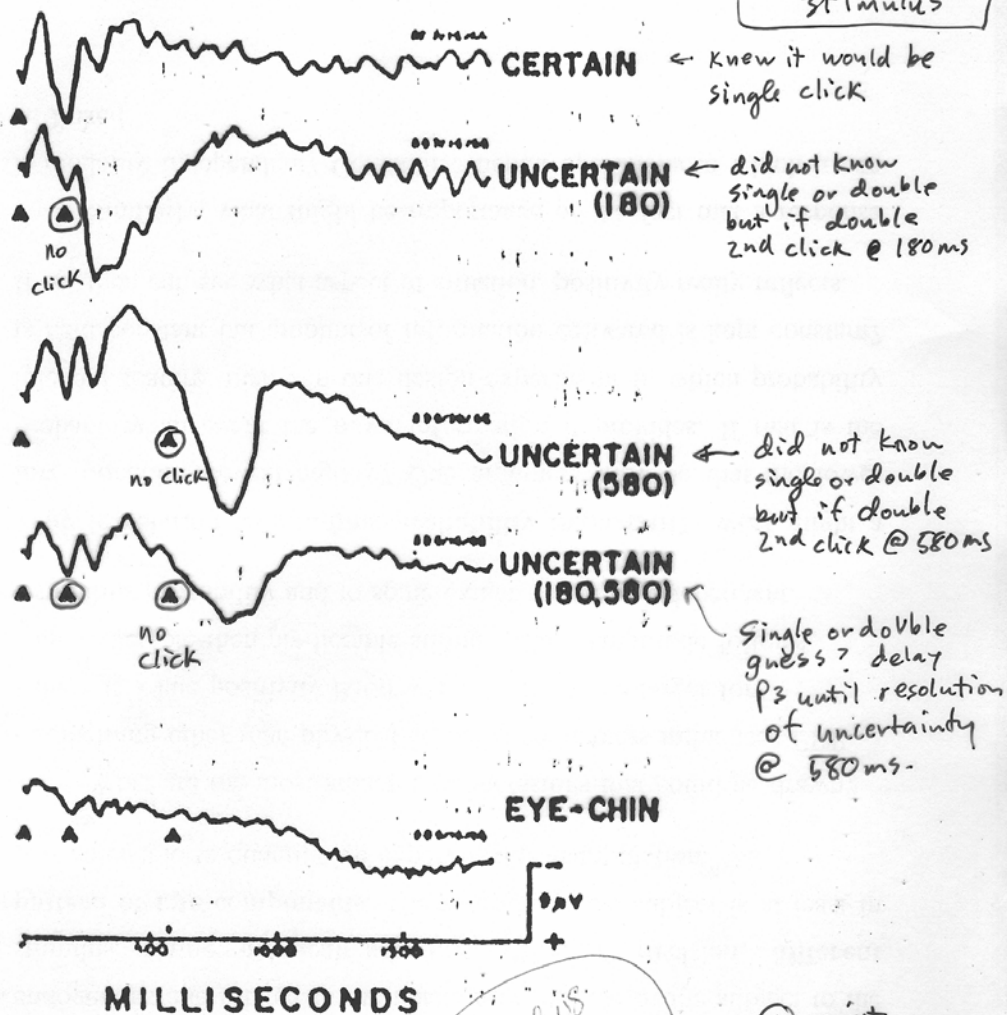 stimulus
CERTAIN ← knew it would be
single click
UNCERTAIN ← did not know
(180) single or double
but if double
2nd click @ 180ms
no
click
no click
UNCERTAIN ← did not know
(580) single or double
but if double
2nd click @ 580ms
UNCERTAIN
(180,580)
no
click
Single or double
guess? delay
P3 until resolution
of uncertainty
@ 580ms.
EYE-CHIN
−
9μV
+
MILLISECONDS